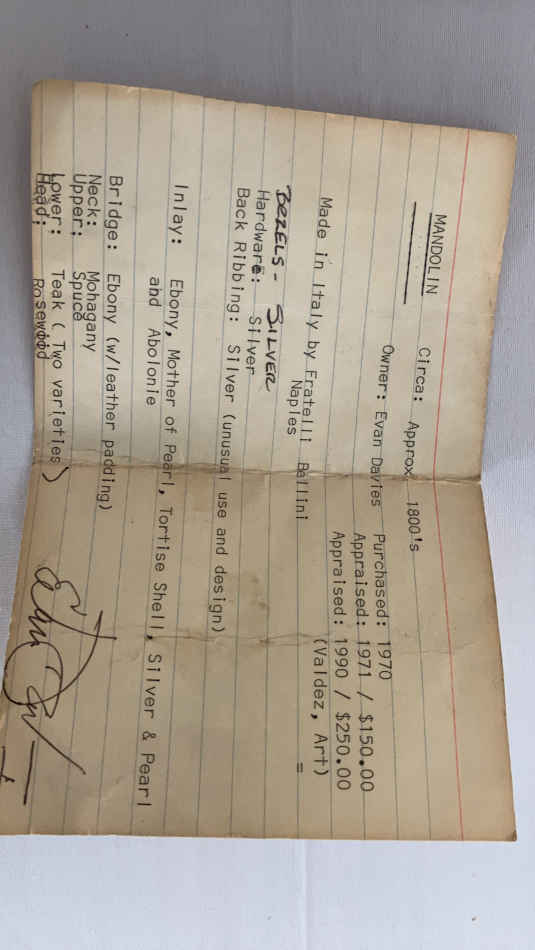 MANDOLIN
Circa: Approx. 1800's
Owner: Evan Davies
Purchased: 1970
Appraised: 1971 / $150.00
Appraised: 1990 / $250.00
(Valdez, Art)
Made in Italy by Fratelli Bellini
Naples
BEZELS - SILVER
Hardware: Silver
Back Ribbing: Silver (unusual use and design)
Inlay: Ebony, Mother of Pearl, Tortise Shell, Silver & Pearl
abd Abolonie
Bridge: Ebony (w/leather padding)
Neck: Mohagany
Upper: Spuce
Lower: Teak ( Two varieties)
Head: Rosewood